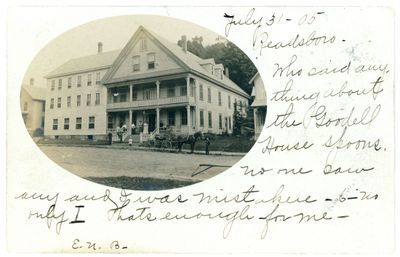 July 31 - 05
Readsboro.
Who said any-
thing about
the Goodell
House spoons.
no one saw
any and I was mist here - no
only I Thats enough for me -
E. N. B-